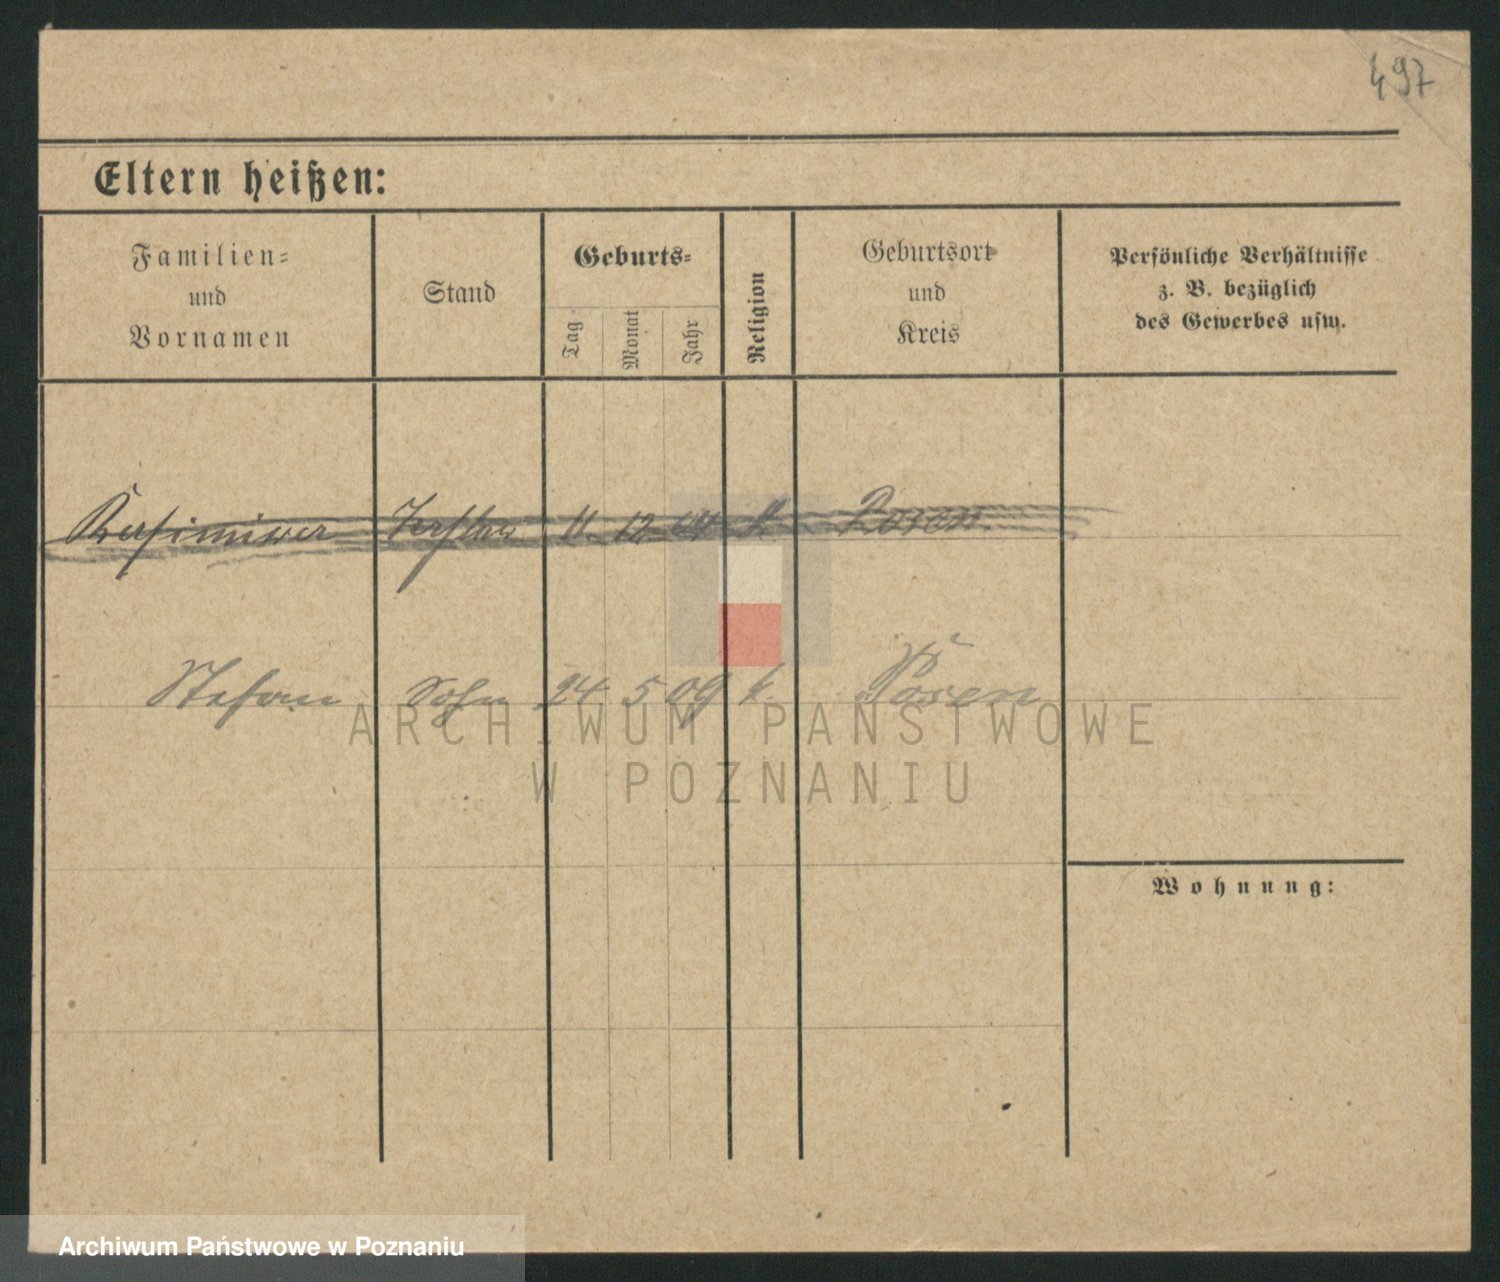 497
Eltern heißen:
Familien-
und
Vornamen
Stand
Geburts-
Tag
Monat
Jahr
Religion
Geburtsort
und
Kreis
Persönliche Verhältnisse
z. B. bezüglich
des Gewerbes usw.
11 12 k Posen
Stefan Sohn 24 5 09 k. Posen
ARCHIWUM PAŃSTWOWE
W POZNANIU
Wohnung:
Archiwum Państwowe w Poznaniu